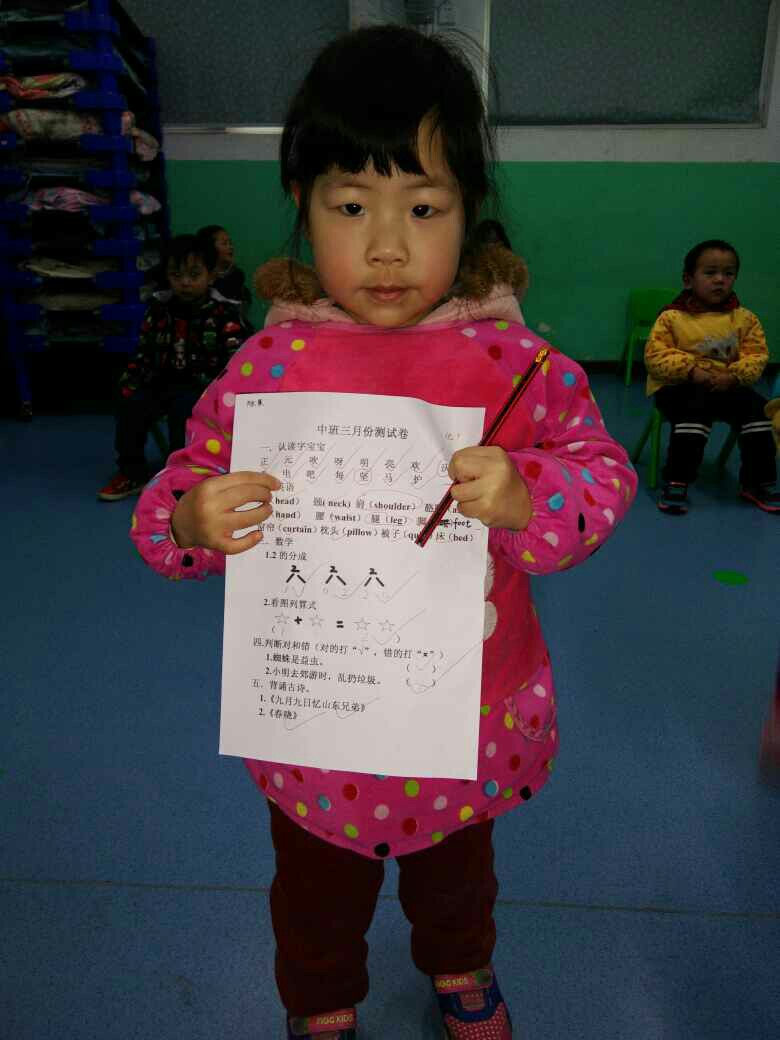 中班三月份测试卷
一、认读字宝宝
正 元 吹 呀 明 亮 欢
电 吧 每 坚 马 护
英语
(head) 颈(neck) 肩(shoulder) 胳
(hand) 腰(waist) 腿(leg) 脚 foot
窗帘(curtain) 枕头(pillow) 被子(qu 床(bed)
三、数学
1.2 的分成
2.看图列算式
☆ + ☆ = ☆ ☆
( )
四.判断对和错(对的打“√”,错的打“×”)
1.蜘蛛是益虫。 ( )
2.小明去郊游时,乱扔垃圾。 ( )
五、背诵古诗。
1.《九月九日忆山东兄弟》
2.《春晓》
NGC KIDS
NGC KIDS